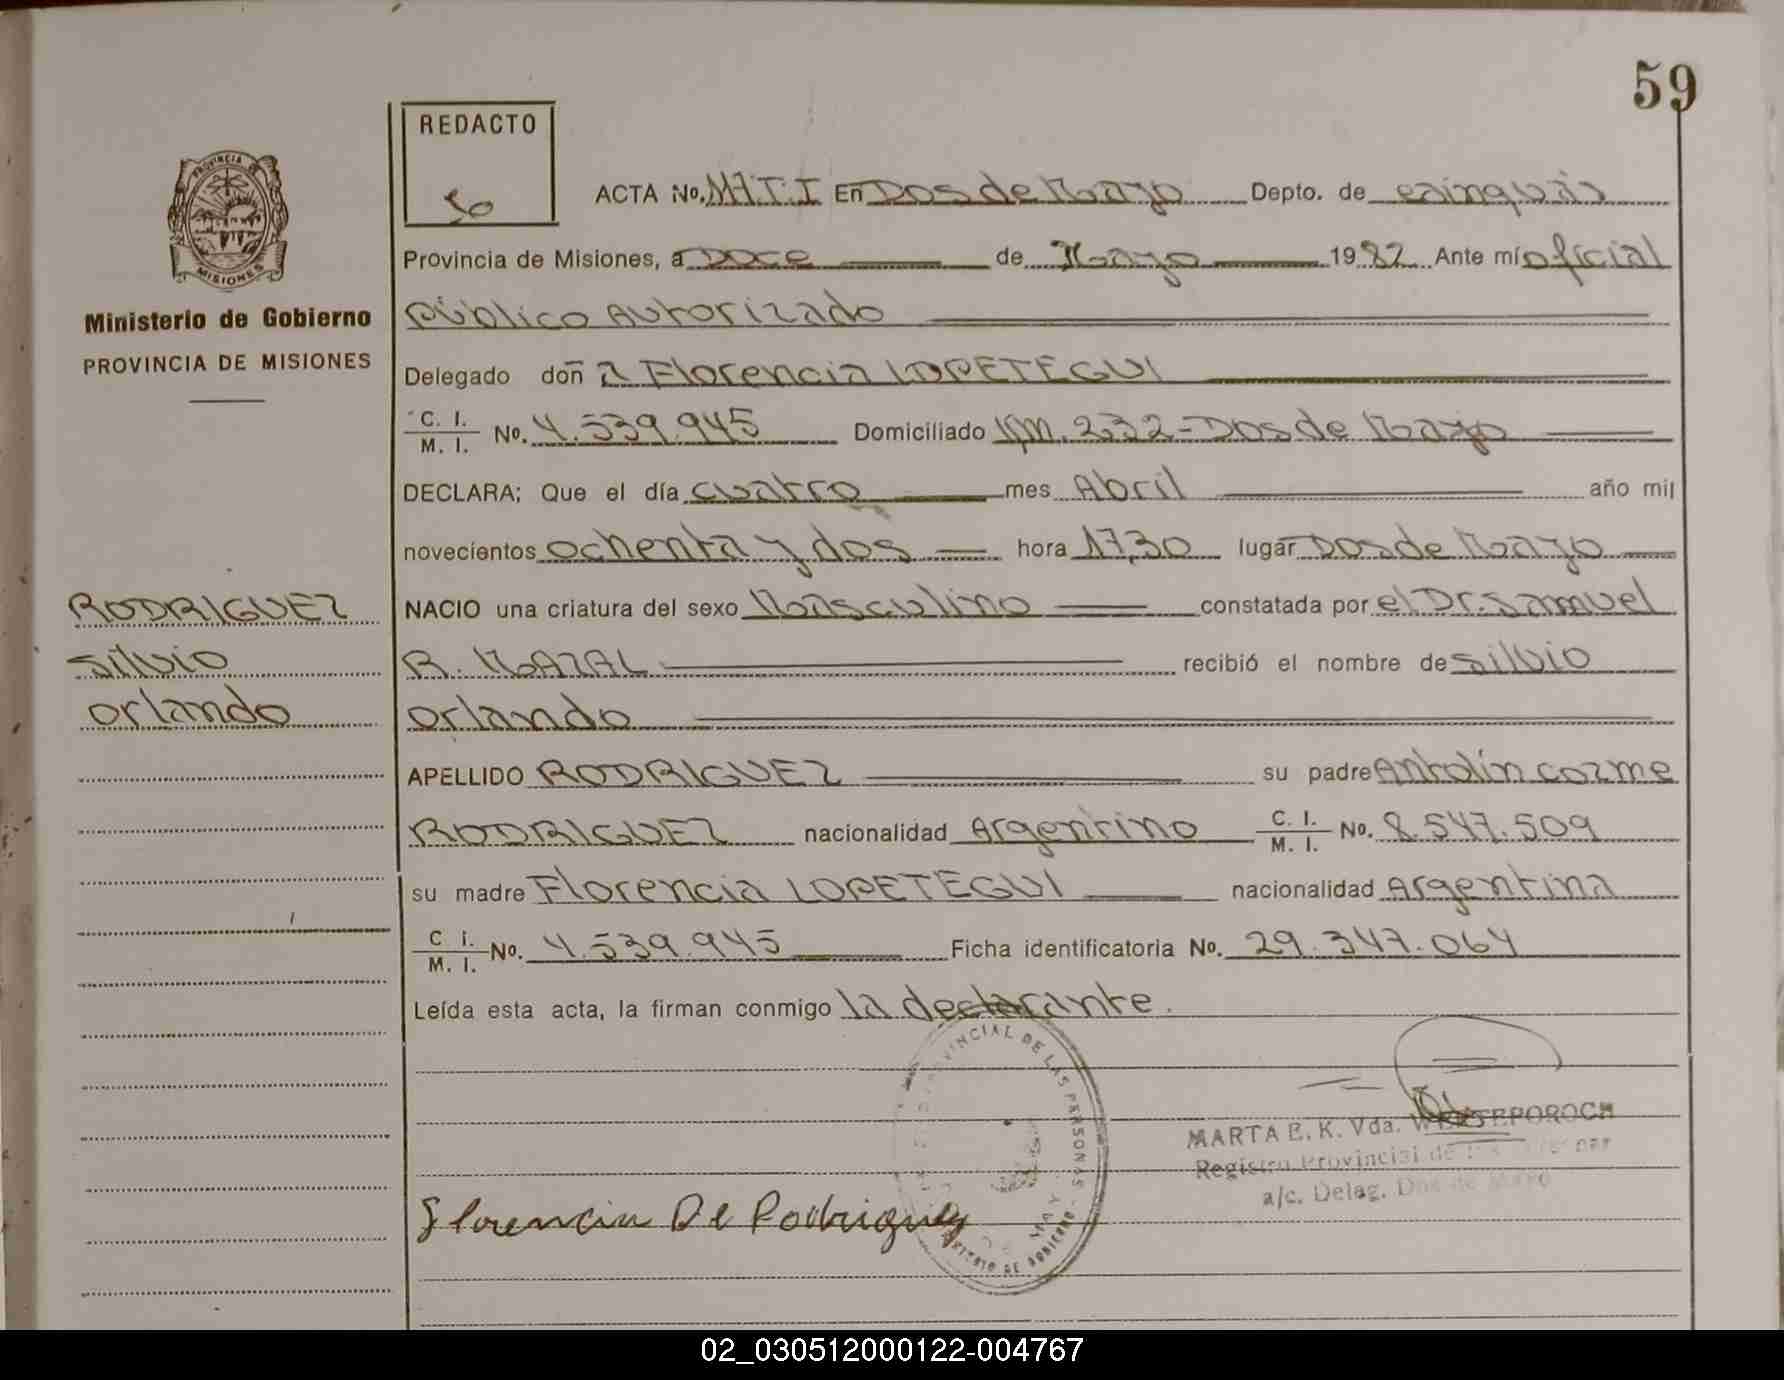 59
REDACTO
50
PROVINCIA DE
MISIONES
Ministerio de Gobierno
PROVINCIA DE MISIONES
ACTA No. En Dos de Mayo Depto. de cainguás
Provincia de Misiones, a Doce de Mayo 1982 Ante mí oficial
Público Autorizado
Delegado doñ a Florencia LOPETEGUI
C. I. / M. I. No. 4.539.945 Domiciliado Km. 232 - Dos de Mayo
DECLARA; Que el día cuatro mes Abril año mil
novecientos ochenta y dos hora 17,30 lugar Dos de Mayo
NACIO una criatura del sexo Masculino constatada por el Dr. Samuel
R. MAZAL recibió el nombre de Silvio
Orlando
APELLIDO RODRIGUEZ su padre Antolín Cozme
RODRIGUEZ nacionalidad Argentino C. I. / M. I. No. 8.547.509
su madre Florencia LOPETEGUI nacionalidad Argentina
C I. / M. I. No. 4.539.945 Ficha identificatoria No. 29.347.064
Leída esta acta, la firman conmigo la declarante.
RODRIGUEZ
Silvio
Orlando
PROVINCIAL DE LAS PERSONAS
DE GOBIERNO
MARTA E. K. Vda.
Registro Provincial de
a/c. Deleg. Dos de Mayo
Florencia De Rodriguez
02_030512000122-004767